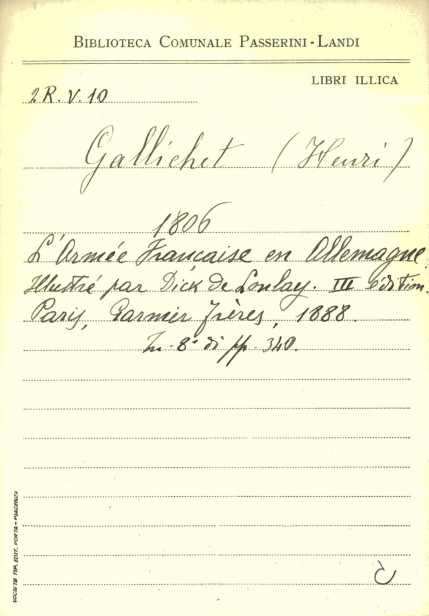 BIBLIOTECA COMUNALE PASSERINI-LANDI
LIBRI ILLICA
2R.V.10
Gallichet (Henri)
1806
L'Armée Francaise en Allemagne.
Illustré par Dick de Lonlay. III édition.
Paris, Garnier Frères, 1888.
In-8° di pp. 340.
SOCIETÀ TIP. EDIT. PORTA - PIACENZA